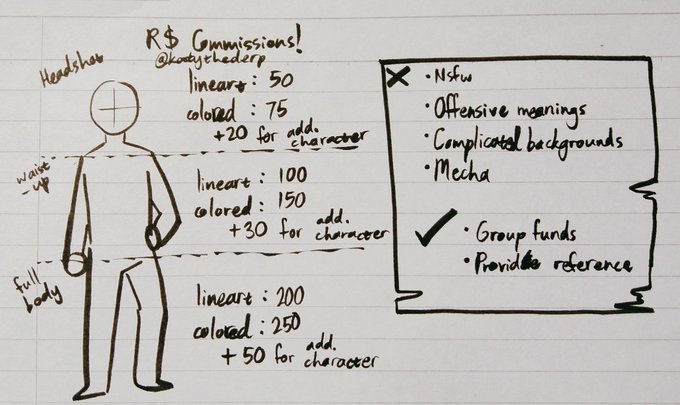 R$ Commissions!
@kootythederp
Headshot
lineart : 50
colored : 75
+20 for add. character
waist-up
lineart : 100
colored : 150
+30 for add. character
full body
lineart : 200
colored : 250
+ 50 for add. character
X
• Nsfw
• Offensive meanings
• Complicated backgrounds
• Mecha
✓
• Group funds
• Provide reference